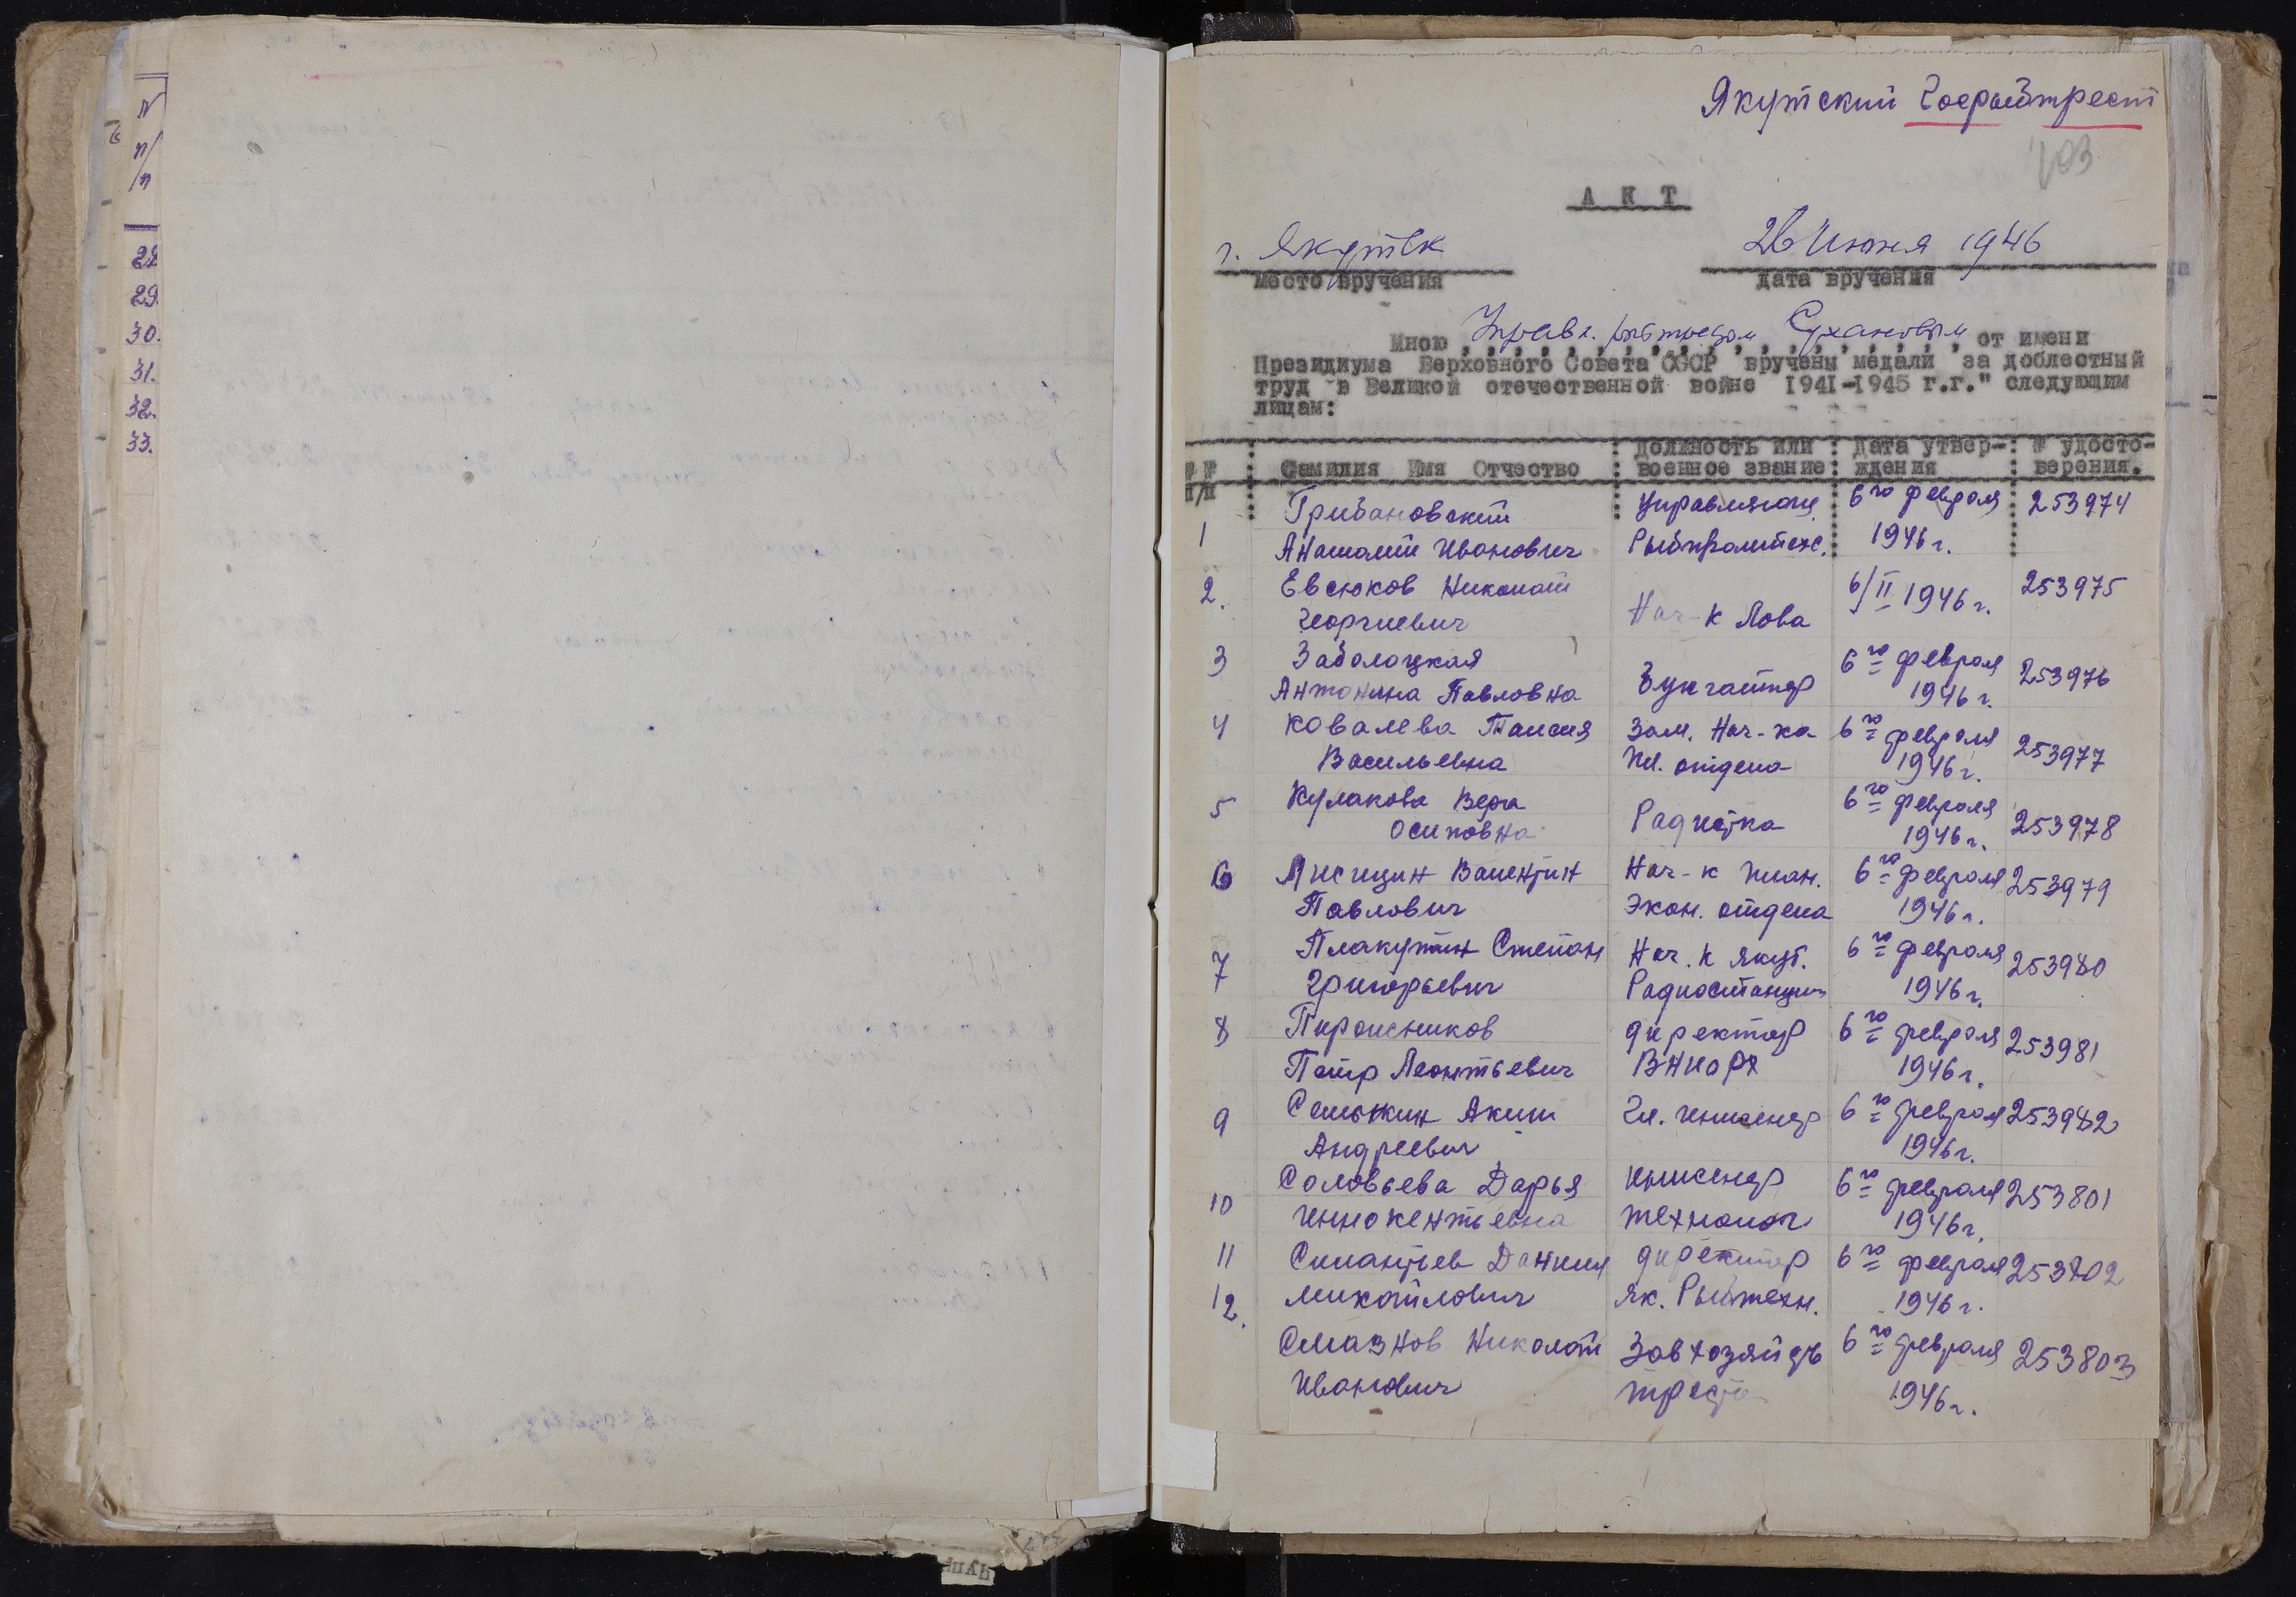 N
п/
п
28
29.
30.
31.
32.
33.
Якутский Госрыбтрест
103
АКТ
г. Якутск
26 Июня 1946
место вручения
дата вручения
Мною Управл. рыбтрестом Сухановым от имени
Президиума Верховного Совета СССР вручены медали "за доблестный
труд в Великой отечественной войне 1941-1945 г.г." следующим
лицам:
№№ п/п Фамилия Имя Отчество должность или военное звание дата утверждения № удостоверения.
1 Грибановский Управляющ 6го февраля 253974
Анатолий Иванович Рыбпромтехс. 1946 г.
2. Евсюков Николай 6/II 1946 г. 253975
Георгиевич Нач-к Лова
3 Заболоцкая 6го февраля 253976
Антонина Павловна Бухгалтер 1946 г.
4 Ковалева Таисия Зам. Нач-ка 6го февраля 253977
Васильевна Пл. отдела 1946 г.
5 Кулакова Вера Радистка 6го февраля 253978
Осиповна 1946 г.
6 Лисицин Валентин Нач-к План. 6го февраля 253979
Павлович Экон. отдела 1946 г.
7 Плакутин Степан Нач.к Якут. 6го февраля 253980
Григорьевич Радиостанции 1946 г.
8 Пирожников директор 6го февраля 253981
Петр Леонтьевич ВНИОРХ 1946 г.
9 Аким Гл. инженер 6го февраля 253982
Андреевич 1946 г.
10 Соловьева Дарья инженер 6го февраля 253801
Иннокентьевна технолог 1946 г.
11 Силантьев Даниил директор 6го февраля 253802
12. Михайлович Як. Рыбтехн. 1946 г.
Смазнов Николай Завхозяйств 6го февраля 253803
Иванович треста 1946 г.